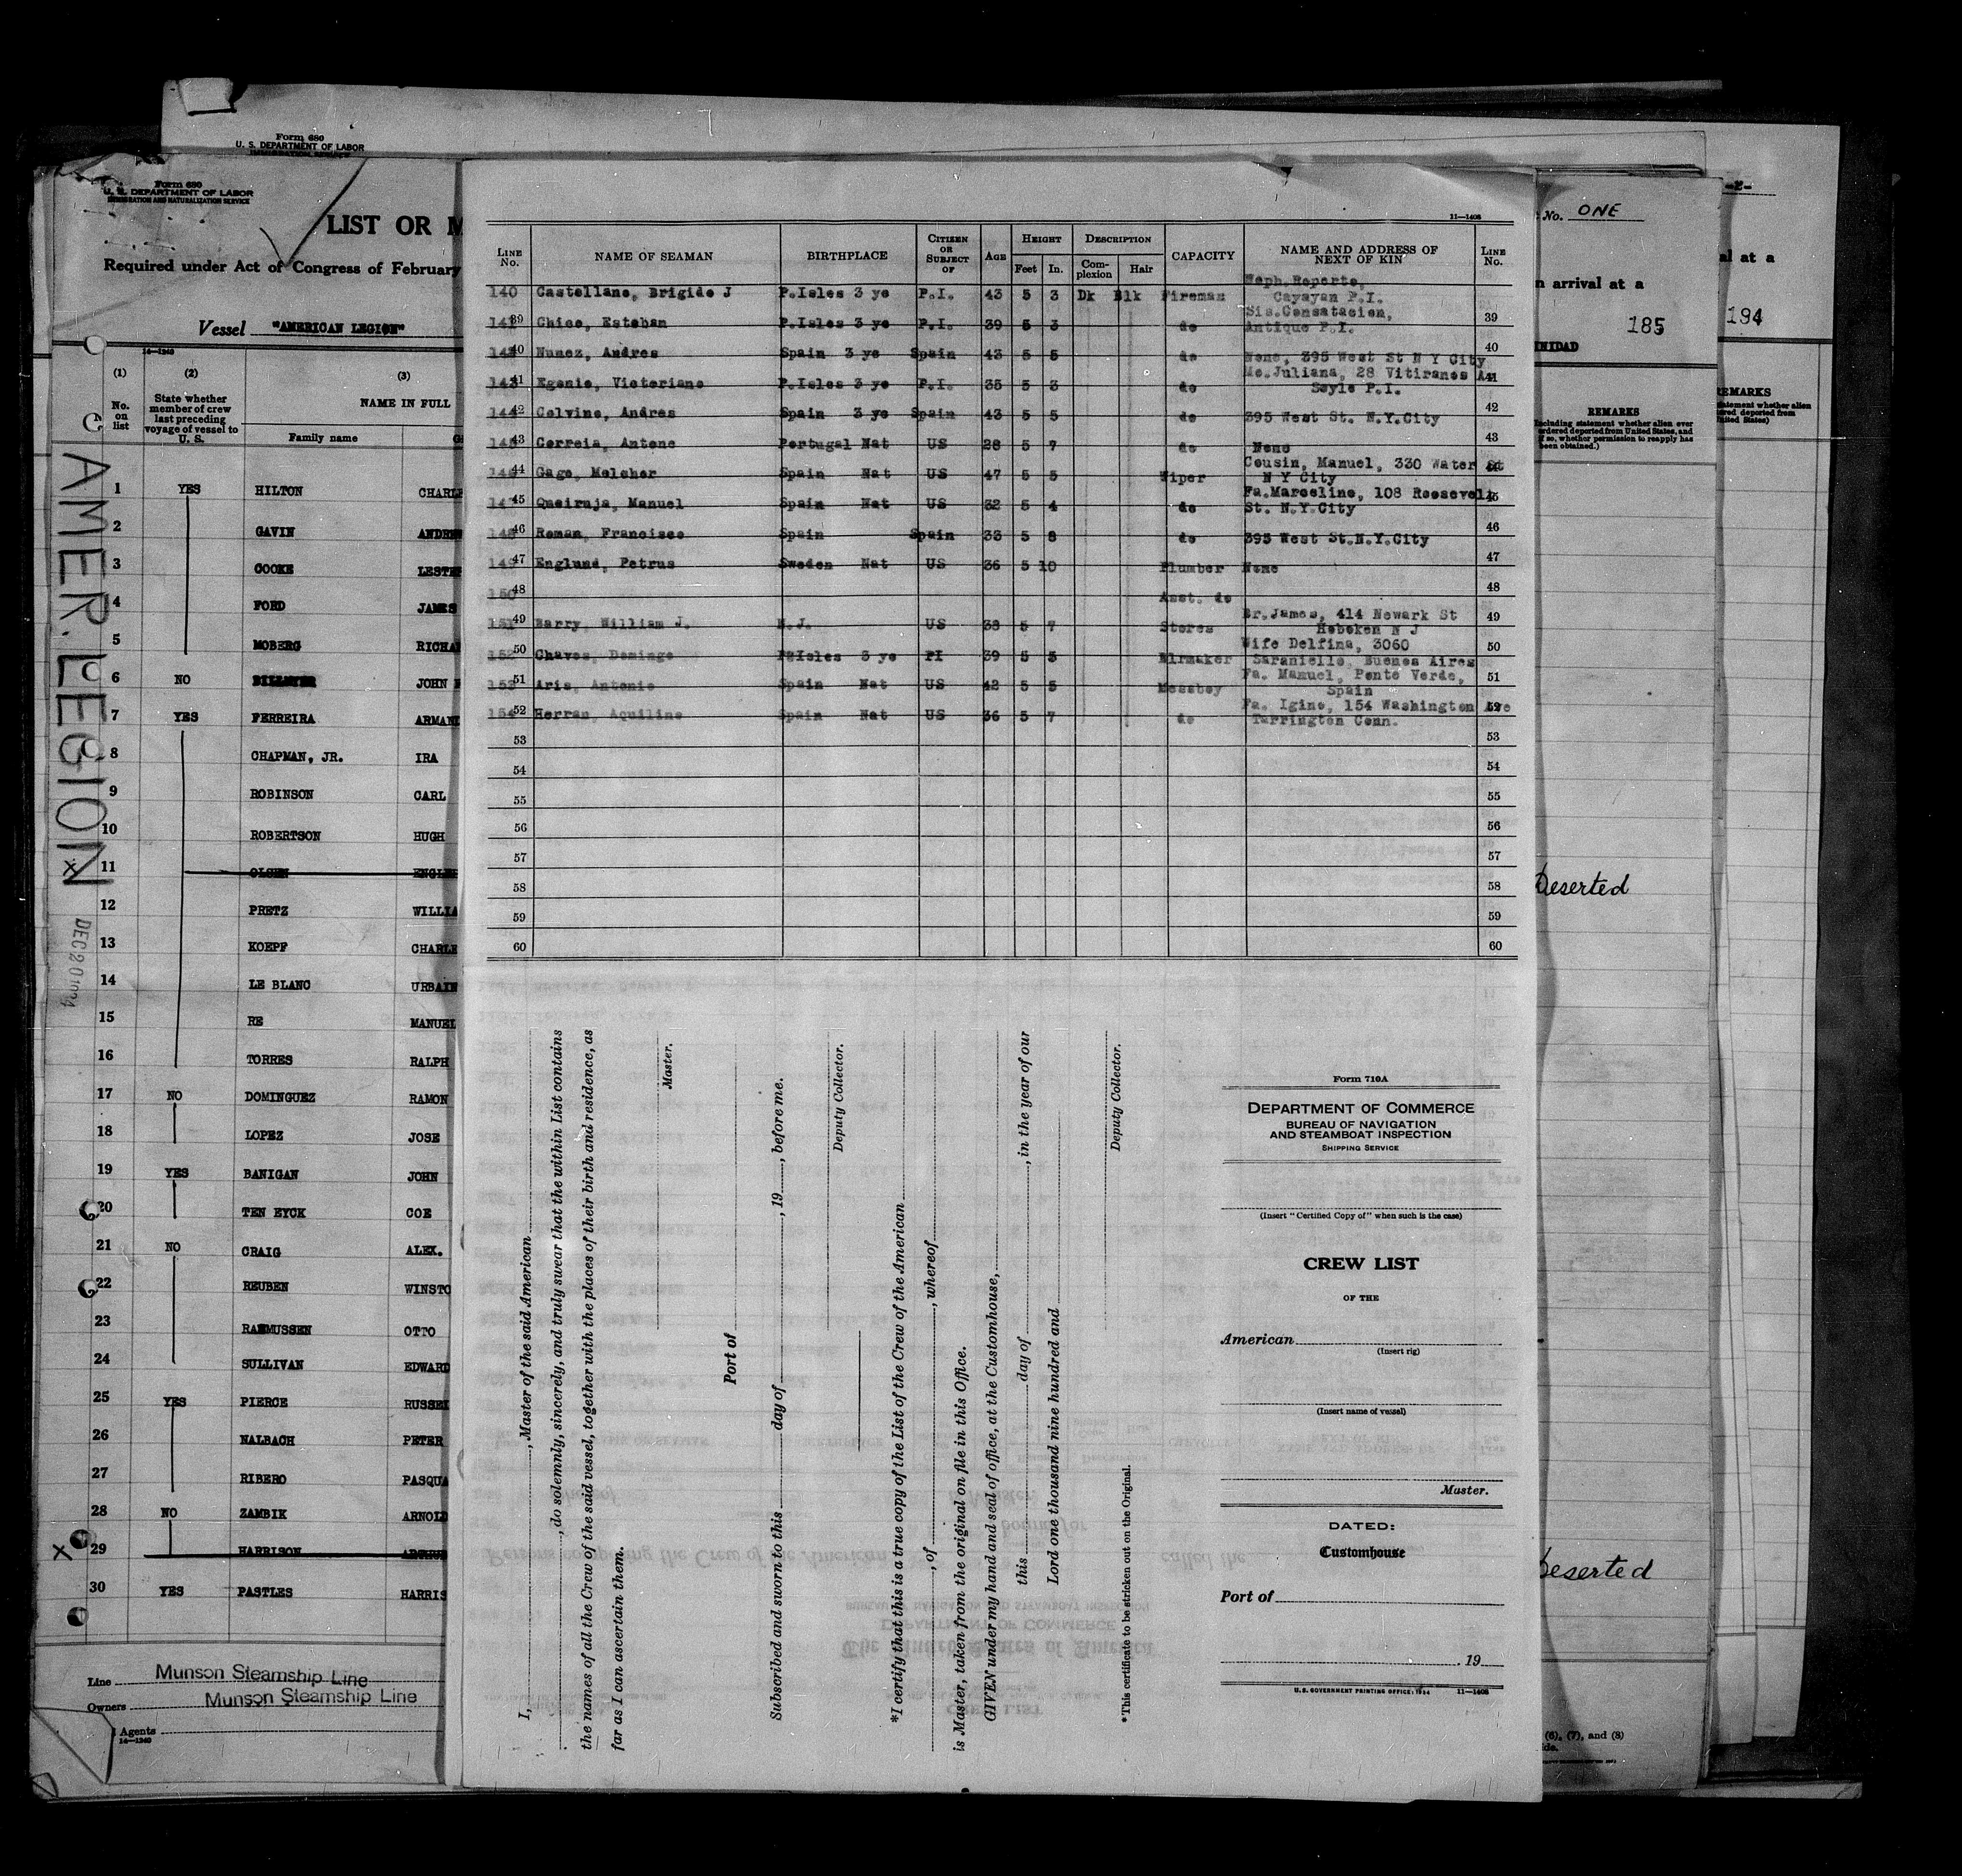 Form 680
U. S. DEPARTMENT OF LABOR
Form 680
U. S. DEPARTMENT OF LABOR
IMMIGRATION AND NATURALIZATION SERVICE
LIST OR M
Required under Act of Congress of February
Vessel "AMERICAN LEGION"
14—1240
(1) (2) (3)
No. on list
State whether member of crew last preceding voyage of vessel to U. S.
NAME IN FULL
Family name G
AMER. LEGION
DEC 20 1934
1 YES HILTON CHARLE
2 GAVIN ANDREW
3 COOKE LESTER
4 FORD JAMES
5 MOBERG RICHA
6 NO JOHN
7 YES FERREIRA ARMAN
8 CHAPMAN, JR. IRA
9 ROBINSON CARL
10 ROBERTSON HUGH
x 11 OLSEN ENGLE
12 PRETZ WILLIA
13 KOEPF CHARLE
14 LE BLANC URBAIN
15 RE MANUEL
16 TORRES RALPH
17 NO DOMINGUEZ RAMON
18 LOPEZ JOSE
19 YES BANIGAN JOHN
20 TEN EYCK COE
21 NO CRAIG ALEX.
22 REUBEN WINSTO
23 RASMUSSEN OTTO
24 SULLIVAN EDWARD
25 YES PIERCE RUSSEL
26 NALBACH PETER
27 RIBERO PASQUA
28 NO ZAMBIK ARNOLD
x 29 HARRISON ARTHUR
30 YES PASTLES HARRIS
Line Munson Steamship Line
Owners Munson Steamship Line
Agents
14—1240
11—1408
LINE No. NAME OF SEAMAN BIRTHPLACE CITIZEN OR SUBJECT OF AGE HEIGHT Feet In. DESCRIPTION Complexion Hair CAPACITY NAME AND ADDRESS OF NEXT OF KIN LINE No.
140 Castellano, Brigido J P.Isles 3 ye P.I. 43 5 3 Dk Blk Fireman Neph.Reperto,
Cayayan P.I.
141 39 Chico, Esteban P.Isles 3 ye P.I. 39 5 3 do Sis.Consatacion, 39
Antique P.I.
142 40 Nunez, Andres Spain 3 ye Spain 43 5 5 do None, 395 West St N Y City 40
143 41 Egonio, Victoriano P.Isles 3 ye P.I. 35 5 3 do Mo.Juliana, 28 Vitiranos A. 41
Soyle P.I.
144 42 Calvino, Andres Spain 3 ye Spain 43 5 5 do 395 West St. N.Y.City 42
145 43 Correia, Antone Portugal Nat US 28 5 7 do None 43
146 44 Gago, Melchor Spain Nat US 47 5 5 Wiper Cousin, Manuel, 330 Water St 44
N Y City
147 45 Queiruja, Manuel Spain Nat US 32 5 4 do Fa.Marcelino, 108 Roosevelt 45
St. N.Y.City
148 46 Roman, Francisco Spain Spain 33 5 8 do 395 West St.N.Y.City 46
149 47 Englund, Petrus Sweden Nat US 36 5 10 Plumber None 47
150 48 Asst. do 48
151 49 Barry, William J. N.J. US 38 5 7 Stores Br.James, 414 Newark St 49
Hoboken N J
152 50 Chaves, Domingo P Isles 3 ye PI 39 5 5 Elrmaker Wife Delfina, 3060 50
Saranielle, Buenos Aires
153 51 Aris, Antonio Spain Nat US 42 5 5 Messboy Fa. Manuel, Ponte Verde, 51
Spain
154 52 Herran, Aquilino Spain Nat US 36 5 7 do Fa. Igino, 154 Washington Ave 52
Tarrington Conn.
53 53
54 54
55 55
56 56
57 57
58 58
59 59
60 60
I, , Master of the said American
, do solemnly, sincerely, and truly swear that the within List contains
the names of all the Crew of the said vessel, together with the places of their birth and residence, as
far as I can ascertain them.
Master.
Port of
Subscribed and sworn to this day of , 19 , before me.
Deputy Collector.
*I certify that this is a true copy of the List of the Crew of the American
, of , whereof
is Master, taken from the original on file in this Office.
GIVEN under my hand and seal of office, at the Customhouse,
this day of , in the year of our
Lord one thousand nine hundred and
Deputy Collector.
*This certificate to be stricken out on the Original.
Form 710A
DEPARTMENT OF COMMERCE
BUREAU OF NAVIGATION
AND STEAMBOAT INSPECTION
SHIPPING SERVICE
(Insert "Certified Copy of" when such is the case)
CREW LIST
OF THE
American
(Insert rig)
(Insert name of vessel)
Master.
DATED:
Customhouse
Port of
, 19
U.S. GOVERNMENT PRINTING OFFICE: 1934 11—1408
No. ONE
n arrival at a
185
INIDAD
REMARKS
(Including statement whether alien ever
ordered deported from United States, and
if so, whether permission to reapply has
been obtained.)
Deserted
Deserted
(6), (7), and (8)
al at a
194
REMARKS